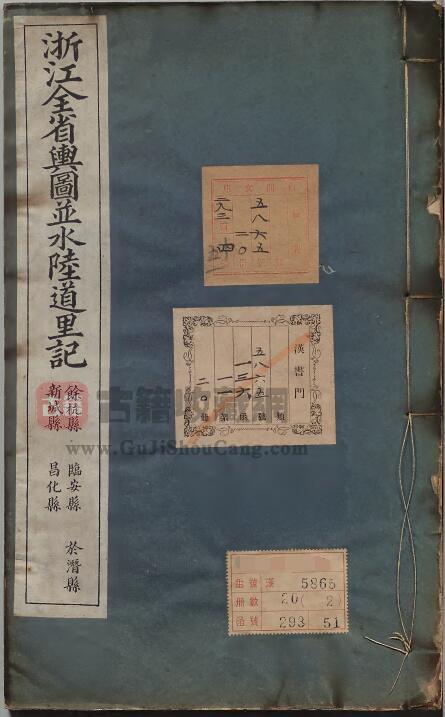 浙江全省輿圖並水陸道里記
餘杭縣 臨安縣 於潛縣
新城縣 昌化縣
五八六五
二〇
二九三
漢書門
類
五八六五號
一三六
一一
二〇冊
古籍收藏網
www.GuJiShouCang.com
號漢 5865
冊數 20(2)
函號 293 51